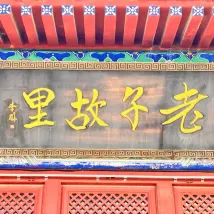 老子故里